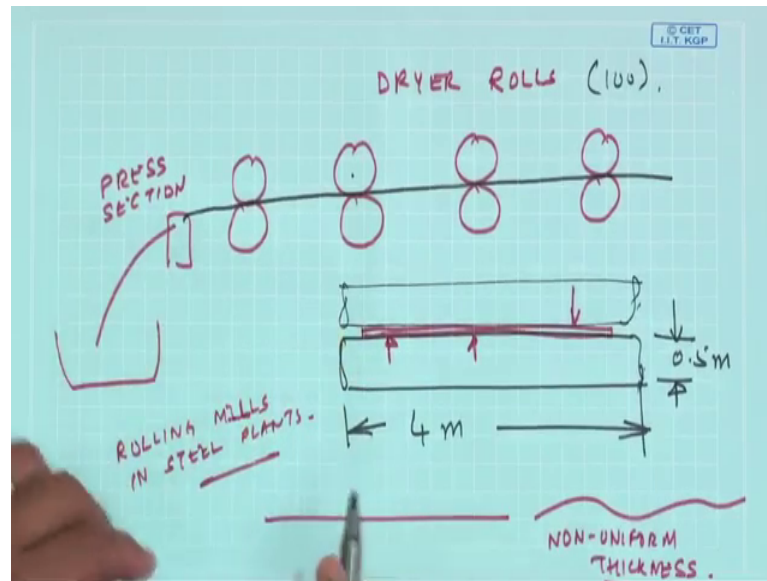 © CET
I.I.T. KGP
DRYER ROLLS (100).
PRESS
SECTION
0.5m
4 m
ROLLING MILLS
IN STEEL PLANTS.
NON-UNIFORM
THICKNESS.